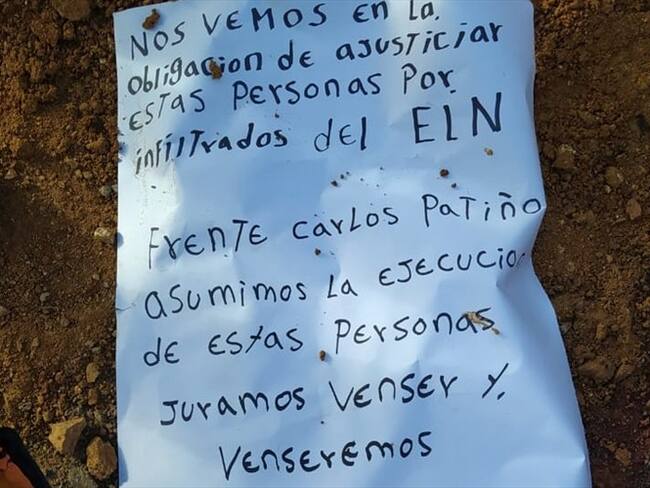 NOS VEMOS EN LA
obligacion de ajusticiar
ESTAS PERSONAS POR
infiltrados del ELN
FRENTE CARLOS PATIÑO
asumimos LA EJECUCIO
de ESTAS PERSONAS
JURAMOS VENSER Y
VENSEREMOS